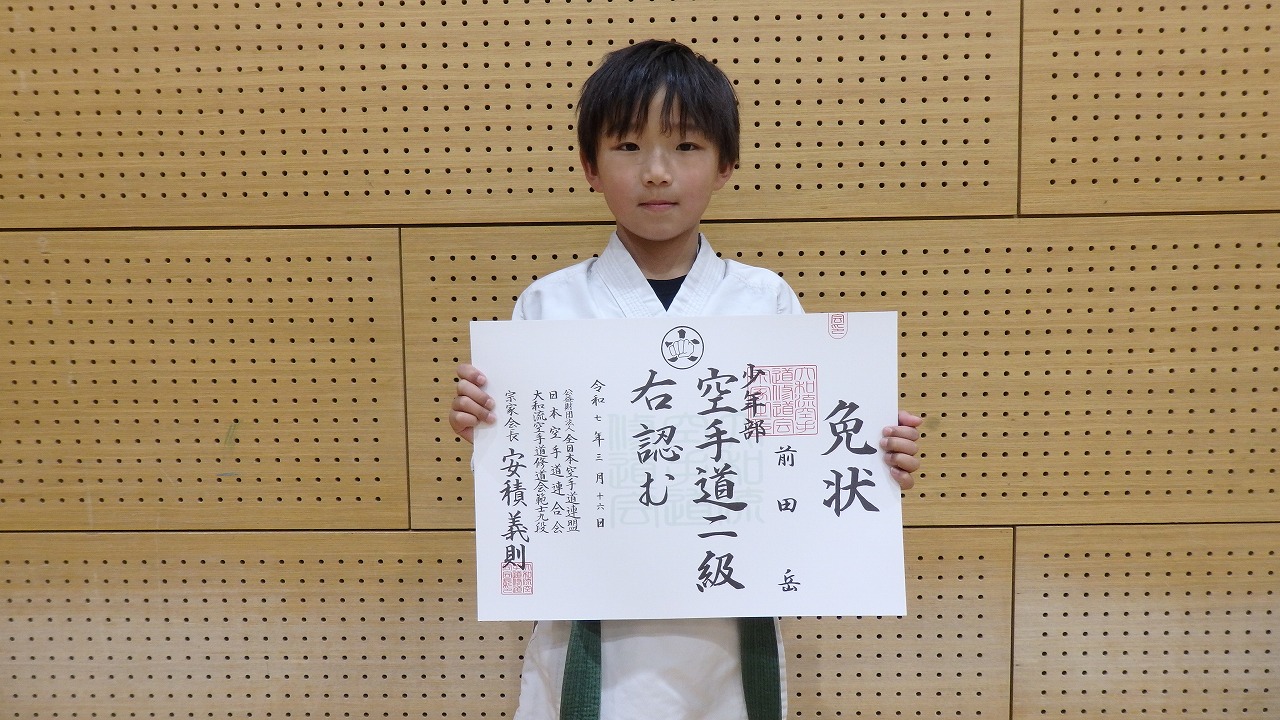 免状
前田岳
少年部
空手道二級
右認む
令和七年三月十六日
公益財団法人全日本空手道連盟
日本空手道連合会
大和流空手道修道会範士九段
宗家会長 安積義則